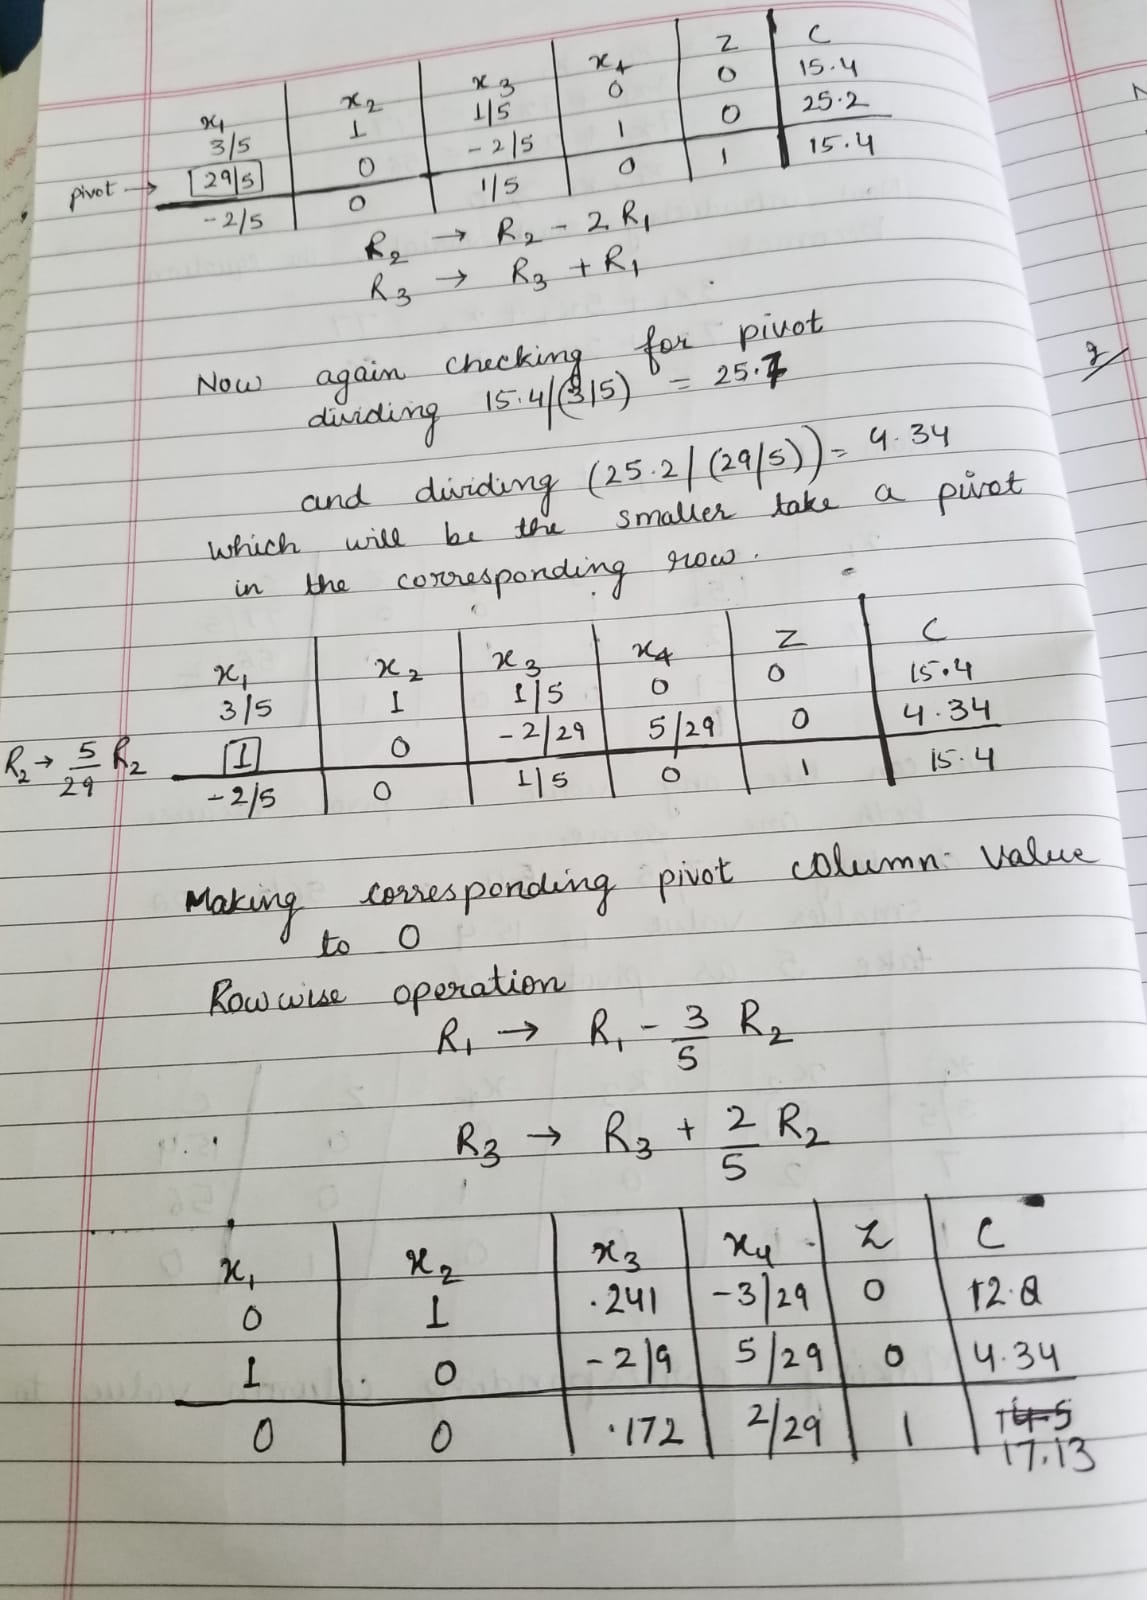 x₁ x₂ x₃ x₄ z C
3/5 1 1/5 0 0 15.4
pivot → 29/5 0 -2/5 1 0 25.2
-2/5 0 1/5 0 1 15.4
R₂ → R₂ - 2R₁
R₃ → R₃ + R₁
Now again checking for pivot
dividing 15.4/(3/5) = 25.7
and dividing (25.2/(29/5)) = 4.34
which will be the smaller take a pivot
in the corresponding row.
x₁ x₂ x₃ x₄ z C
3/5 1 1/5 0 0 15.4
R₂ → 5/29 R₂ 1 0 -2/29 5/29 0 4.34
-2/5 0 1/5 0 1 15.4
Making corresponding pivot column value
to 0
Row wise operation
R₁ → R₁ - 3/5 R₂
R₃ → R₃ + 2/5 R₂
x₁ x₂ x₃ x₄ z C
0 1 .241 -3/29 0
1 0 -2/9 5/29 0 4.34
0 0 .172 2/29 1 17.13